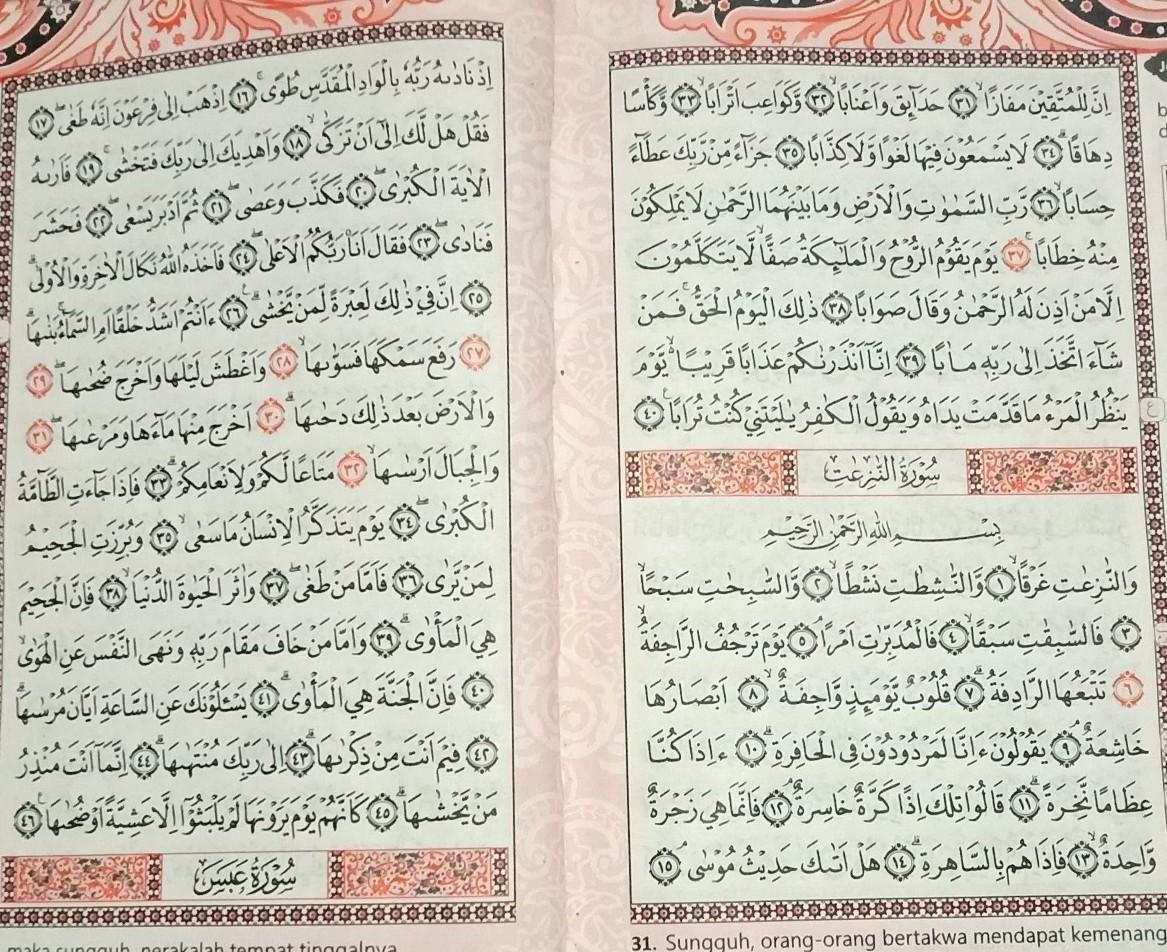 اِنَّ لِلْمُتَّقِيْنَ مَفَازًاۙ ٣١ حَدَاۤىِٕقَ وَاَعْنَابًاۙ ٣٢ وَّكَوَاعِبَ اَتْرَابًاۙ ٣٣ وَّكَأْسًا
دِهَاقًاۗ ٣٤ لَا يَسْمَعُوْنَ فِيْهَا لَغْوًا وَّلَا كِذَّابًاۚ ٣٥ جَزَاۤءً مِّنْ رَّبِّكَ عَطَاۤءً
حِسَابًاۙ ٣٦ رَّبِّ السَّمٰوٰتِ وَالْاَرْضِ وَمَا بَيْنَهُمَا الرَّحْمٰنِ لَا يَمْلِكُوْنَ
مِنْهُ خِطَابًاۚ ٣٧ يَوْمَ يَقُوْمُ الرُّوْحُ وَالْمَلٰۤىِٕكَةُ صَفًّاۙ لَّا يَتَكَلَّمُوْنَ
اِلَّا مَنْ اَذِنَ لَهُ الرَّحْمٰنُ وَقَالَ صَوَابًا ٣٨ ذٰلِكَ الْيَوْمُ الْحَقُّۚ فَمَنْ
شَاۤءَ اتَّخَذَ اِلٰى رَبِّهٖ مَاٰبًا ٣٩ اِنَّآ اَنْذَرْنٰكُمْ عَذَابًا قَرِيْبًا ەۙ يَّوْمَ
يَنْظُرُ الْمَرْءُ مَا قَدَّمَتْ يَدَاهُ وَيَقُوْلُ الْكٰفِرُ يٰلَيْتَنِيْ كُنْتُ تُرَابًا ٤٠
سُوْرَةُ النّٰزِعٰتِ
بِسْمِ اللّٰهِ الرَّحْمٰنِ الرَّحِيْمِ
وَالنّٰزِعٰتِ غَرْقًاۙ ١ وَّالنّٰشِطٰتِ نَشْطًاۙ ٢ وَّالسّٰبِحٰتِ سَبْحًاۙ
٣ فَالسّٰبِقٰتِ سَبْقًاۙ ٤ فَالْمُدَبِّرٰتِ اَمْرًاۘ ٥ يَوْمَ تَرْجُفُ الرَّاجِفَةُۙ
٦ تَتْبَعُهَا الرَّادِفَةُۗ ٧ قُلُوْبٌ يَّوْمَىِٕذٍ وَّاجِفَةٌۙ ٨ اَبْصَارُهَا
خَاشِعَةٌۘ ٩ يَقُوْلُوْنَ ءَاِنَّا لَمَرْدُوْدُوْنَ فِى الْحَافِرَةِۗ ١٠ ءَاِذَا كُنَّا
عِظَامًا نَّخِرَةًۗ ١١ قَالُوْا تِلْكَ اِذًا كَرَّةٌ خَاسِرَةٌۘ ١٢ فَاِنَّمَا هِيَ زَجْرَةٌ
وَّاحِدَةٌۙ ١٣ فَاِذَا هُمْ بِالسَّاهِرَةِۗ ١٤ هَلْ اَتٰىكَ حَدِيْثُ مُوْسٰىۘ ١٥
31. Sungguh, orang-orang bertakwa mendapat kemenang
اِذْ نَادٰىهُ رَبُّهٗ بِالْوَادِ الْمُقَدَّسِ طُوًىۚ ١٦ اِذْهَبْ اِلٰى فِرْعَوْنَ اِنَّهٗ طَغٰىۖ ١٧
فَقُلْ هَلْ لَّكَ اِلٰٓى اَنْ تَزَكّٰىۙ ١٨ وَاَهْدِيَكَ اِلٰى رَبِّكَ فَتَخْشٰىۚ ١٩ فَاَرٰىهُ
الْاٰيَةَ الْكُبْرٰىۖ ٢٠ فَكَذَّبَ وَعَصٰىۖ ٢١ ثُمَّ اَدْبَرَ يَسْعٰىۖ ٢٢ فَحَشَرَ
فَنَادٰىۖ ٢٣ فَقَالَ اَنَا۠ رَبُّكُمُ الْاَعْلٰىۖ ٢٤ فَاَخَذَهُ اللّٰهُ نَكَالَ الْاٰخِرَةِ وَالْاُوْلٰىۗ
٢٥ اِنَّ فِيْ ذٰلِكَ لَعِبْرَةً لِّمَنْ يَّخْشٰىۗ ٢٦ ءَاَنْتُمْ اَشَدُّ خَلْقًا اَمِ السَّمَاۤءُۚ بَنٰىهَاۗ
٢٧ رَفَعَ سَمْكَهَا فَسَوّٰىهَاۙ ٢٨ وَاَغْطَشَ لَيْلَهَا وَاَخْرَجَ ضُحٰىهَاۖ ٢٩
وَالْاَرْضَ بَعْدَ ذٰلِكَ دَحٰىهَاۗ ٣٠ اَخْرَجَ مِنْهَا مَاۤءَهَا وَمَرْعٰىهَاۖ ٣١
وَالْجِبَالَ اَرْسٰىهَاۙ ٣٢ مَتَاعًا لَّكُمْ وَلِاَنْعَامِكُمْۗ ٣٣ فَاِذَا جَاۤءَتِ الطَّاۤمَّةُ
الْكُبْرٰىۖ ٣٤ يَوْمَ يَتَذَكَّرُ الْاِنْسَانُ مَا سَعٰىۙ ٣٥ وَبُرِّزَتِ الْجَحِيْمُ
لِمَنْ يَّرٰى ٣٦ فَاَمَّا مَنْ طَغٰىۖ ٣٧ وَاٰثَرَ الْحَيٰوةَ الدُّنْيَاۙ ٣٨ فَاِنَّ الْجَحِيْمَ
هِيَ الْمَأْوٰىۗ ٣٩ وَاَمَّا مَنْ خَافَ مَقَامَ رَبِّهٖ وَنَهَى النَّفْسَ عَنِ الْهَوٰىۙ
٤٠ فَاِنَّ الْجَنَّةَ هِيَ الْمَأْوٰىۗ ٤١ يَسْـَٔلُوْنَكَ عَنِ السَّاعَةِ اَيَّانَ مُرْسٰىهَاۗ
٤٢ فِيْمَ اَنْتَ مِنْ ذِكْرٰىهَاۗ ٤٣ اِلٰى رَبِّكَ مُنْتَهٰىهَاۗ ٤٤ اِنَّمَآ اَنْتَ مُنْذِرُ
مَنْ يَّخْشٰىهَاۗ ٤٥ كَاَنَّهُمْ يَوْمَ يَرَوْنَهَا لَمْ يَلْبَثُوْٓا اِلَّا عَشِيَّةً اَوْ ضُحٰىهَا ٤٦
سُوْرَةُ عَبَسَ
maka sungguh, nerakalah tempat tinggalnya